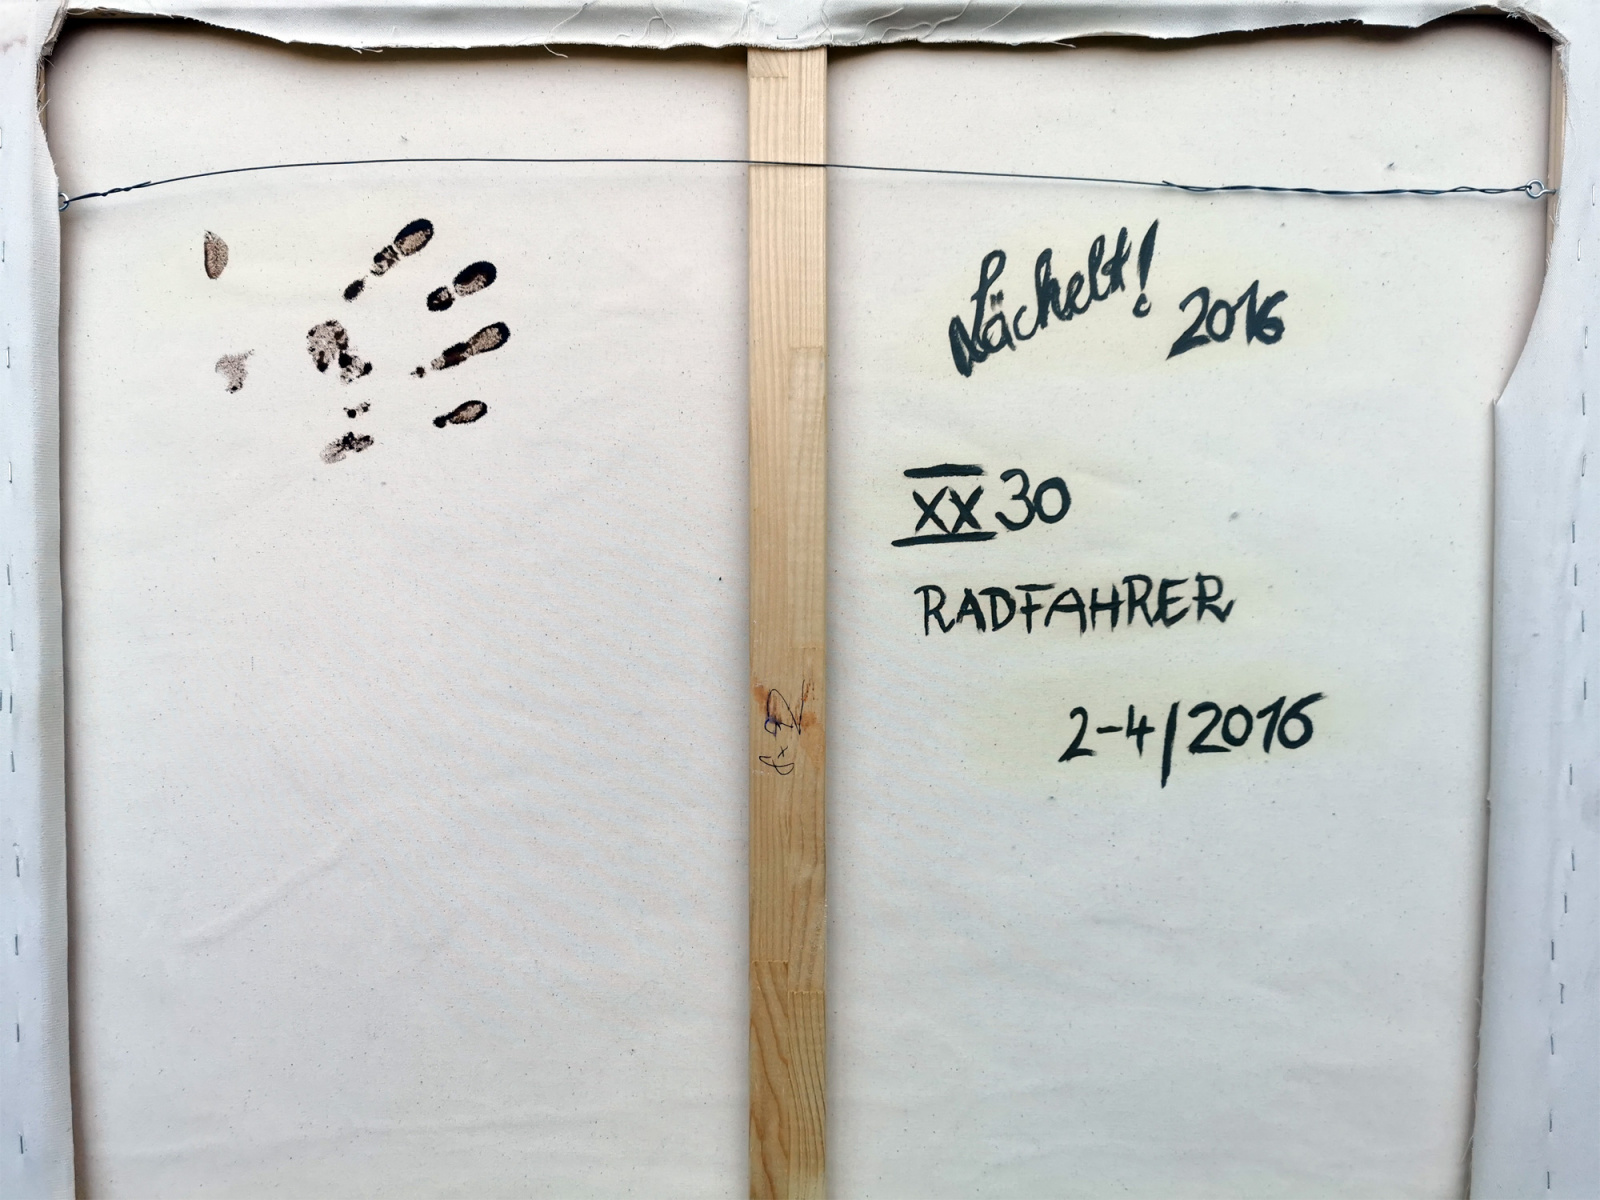 Lächelt! 2016
XX 30
RADFAHRER
2-4/2016